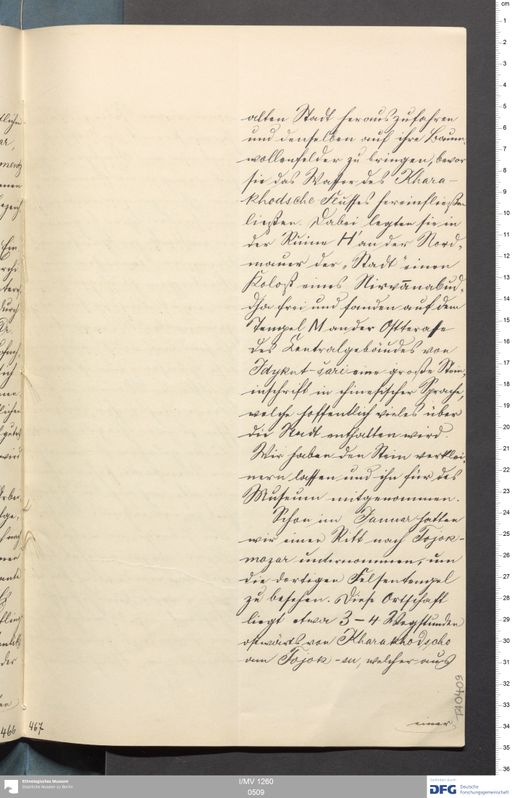 alten Stadt herauszufahren
und denselben auf ihre Baum-
wollenfelder zu bringen, bevor
sie das Wasser des Khara-
khodscho Flusses hereinfließen
ließen. Dabei legten sie in
der Ruine H' an der Nord-
mauer der „Stadt“ einen
Koloß eines Nirvānabud-
dha frei und fanden auf dem
Tempel M an der Ostterasse
des Centralgebäudes von
Idykut-šari eine große Stein-
inschrift in chinesischer Sprache,
welche hoffentlich vieles über
die Stadt enthalten wird
Wir haben den Stein verklei-
nern lassen und ihn für das
Museum mitgenommen.
Schon im Januar hatten
wir einen Ritt nach Tojok-
mazar unternommen, um
die dortigen Felsentempel
zu besehen. Diese Ortschaft
liegt etwa 3-4 Wegstunden
ostwärts von Kharakhodscho
am Tojok-su, welcher aus
einer
TA0409
466 467
Ethnologisches Museum
Staatliche Museen zu Berlin
I/MV 1260
0509
DFG Deutsche
Forschungsgemeinschaft